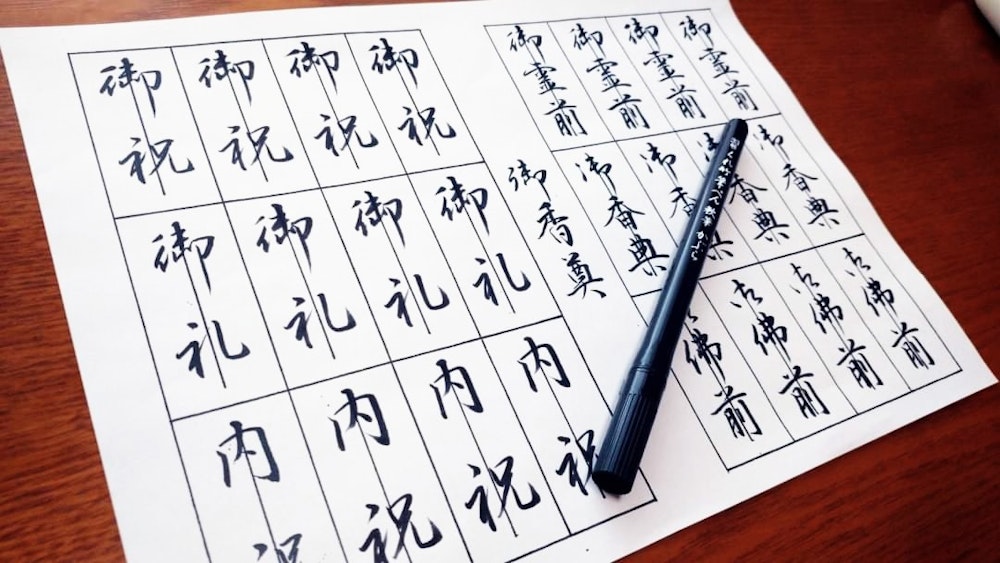 御祝
御祝
御祝
御祝
御礼
御礼
御礼
御礼
内祝
内祝
内祝
内祝
御霊前
御霊前
御霊前
御霊前
御香奠
御香典
御香典
御香典
御香典
佛前
御佛前
御佛前
御佛前